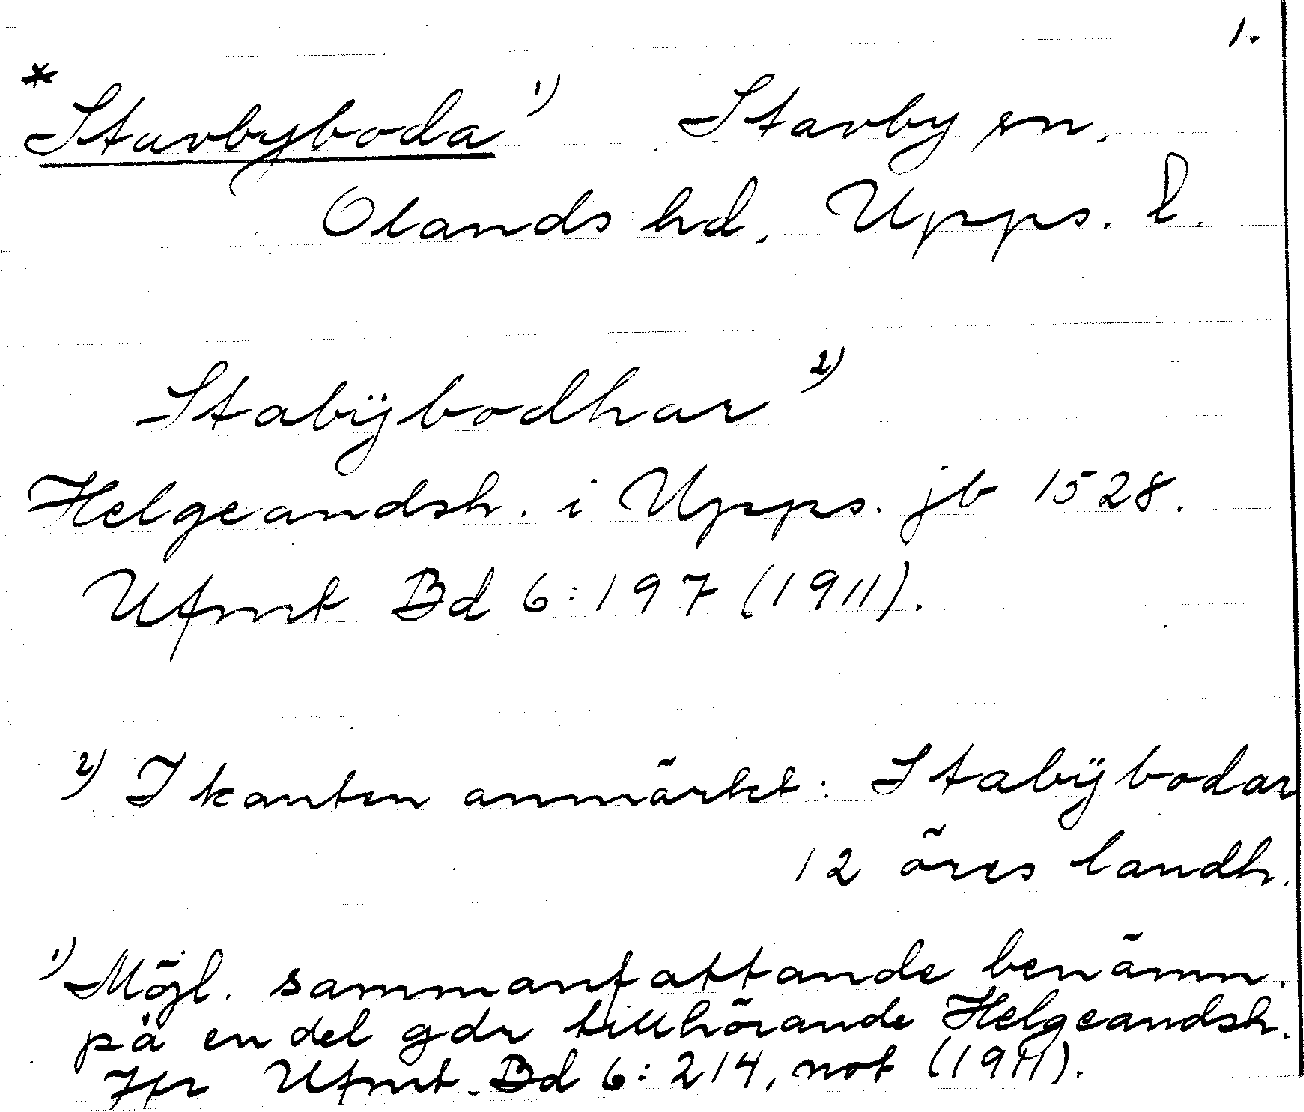 1.
*Stavbyboda 1) Stavby sn.
Olands hd, Upps. l.
Stabÿbodhar 2)
Helgeandsh. i Upps. jb 1528.
Ufmt Bd 6:197 (1911).
2) I kanten anmärkt: Stabÿbodar
12 öres landh.
1) Möjl. sammanfattande benämn.
på en del gdr tillhörande Helgeandsh.
Jfr Ufmt. Bd 6:214, not (1911).